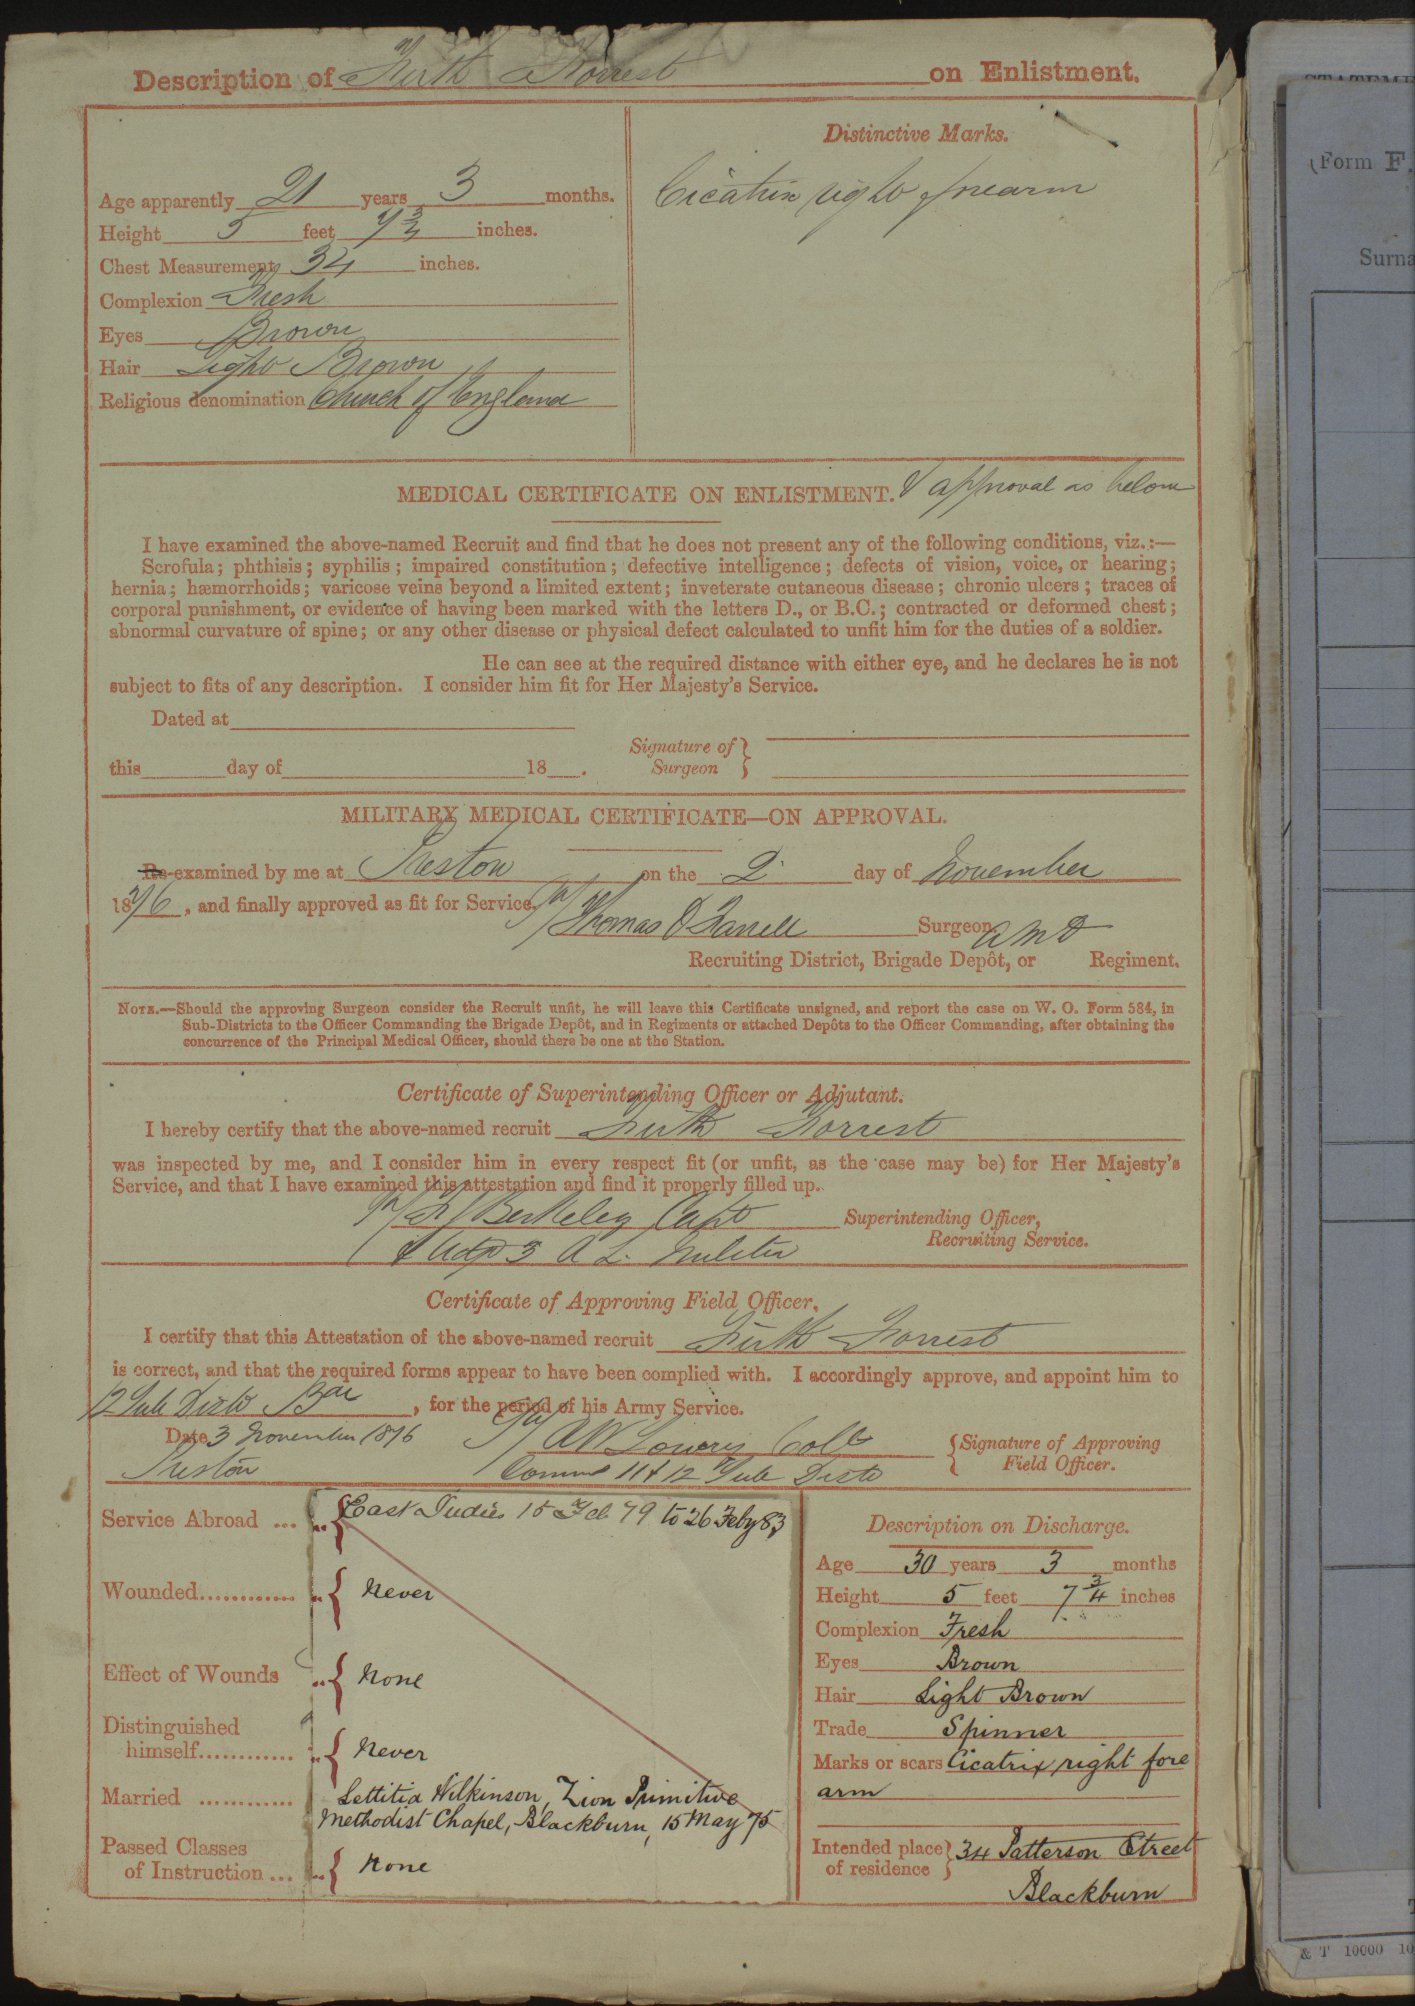 Description of Firth Forrest on Enlistment.
Age apparently 21 years 3 months.
Height 5 feet 7 3/4 inches.
Chest Measurement 34 inches.
Complexion Fresh
Eyes Brown
Hair Light Brown
Religious denomination Church of England
Distinctive Marks.
Cicatrix right forearm
MEDICAL CERTIFICATE ON ENLISTMENT. & approval as below
I have examined the above-named Recruit and find that he does not present any of the following conditions, viz.:—
Scrofula; phthisis; syphilis; impaired constitution; defective intelligence; defects of vision, voice, or hearing;
hernia; hæmorrhoids; varicose veins beyond a limited extent; inveterate cutaneous disease; chronic ulcers; traces of
corporal punishment, or evidence of having been marked with the letters D., or B.C.; contracted or deformed chest;
abnormal curvature of spine; or any other disease or physical defect calculated to unfit him for the duties of a soldier.
He can see at the required distance with either eye, and he declares he is not
subject to fits of any description. I consider him fit for Her Majesty's Service.
Dated at
this day of 18 .
Signature of
Surgeon
MILITARY MEDICAL CERTIFICATE—ON APPROVAL.
Re-examined by me at Preston on the 2 day of November
1876, and finally approved as fit for Service.
Thomas O'Farrell Surgeon AMD
Recruiting District, Brigade Depôt, or Regiment.
NOTE.—Should the approving Surgeon consider the Recruit unfit, he will leave this Certificate unsigned, and report the case on W. O. Form 584, in
Sub-Districts to the Officer Commanding the Brigade Depôt, and in Regiments or attached Depôts to the Officer Commanding, after obtaining the
concurrence of the Principal Medical Officer, should there be one at the Station.
Certificate of Superintending Officer or Adjutant.
I hereby certify that the above-named recruit Firth Forrest
was inspected by me, and I consider him in every respect fit (or unfit, as the case may be) for Her Majesty's
Service, and that I have examined this attestation and find it properly filled up.
Berkeley Capt Superintending Officer,
Recruiting Service.
& Adjt 3 R L Militia
Certificate of Approving Field Officer.
I certify that this Attestation of the above-named recruit Firth Forrest
is correct, and that the required forms appear to have been complied with. I accordingly approve, and appoint him to
12 Sub Dist Bde, for the period of his Army Service.
Date 3 November 1876
Preston
Lowry Colo
Commd 11 & 12 Sub Dists
Signature of Approving
Field Officer.
Service Abroad ... East Indies 15 Feb 79 to 26 Feby 83
Wounded............ Never
Effect of Wounds None
Distinguished
himself............ Never
Married ............ Lettitia Wilkinson, Zion Primitive
Methodist Chapel, Blackburn, 15 May 75
Passed Classes
of Instruction ... None
Description on Discharge.
Age 30 years 3 months
Height 5 feet 7 3/4 inches
Complexion Fresh
Eyes Brown
Hair Light Brown
Trade Spinner
Marks or scars Cicatrix right fore
arm
Intended place
of residence 34 Patterson Street
Blackburn
(Form F.
Surna
& T 10000 10